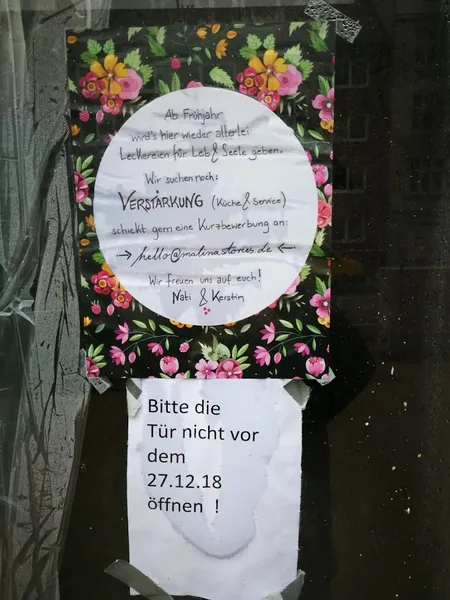 Ab Frühjahr
wird's hier wieder allerlei
Leckereien für Leib & Seele geben.
Wir suchen noch:
VERSTÄRKUNG (Küche & Service)
schickt gern eine Kurzbewerbung an:
→ hello@malinastories.de ←
Wir freuen uns auf euch!
Nati & Kerstin
Bitte die
Tür nicht vor
dem
27.12.18
öffnen !